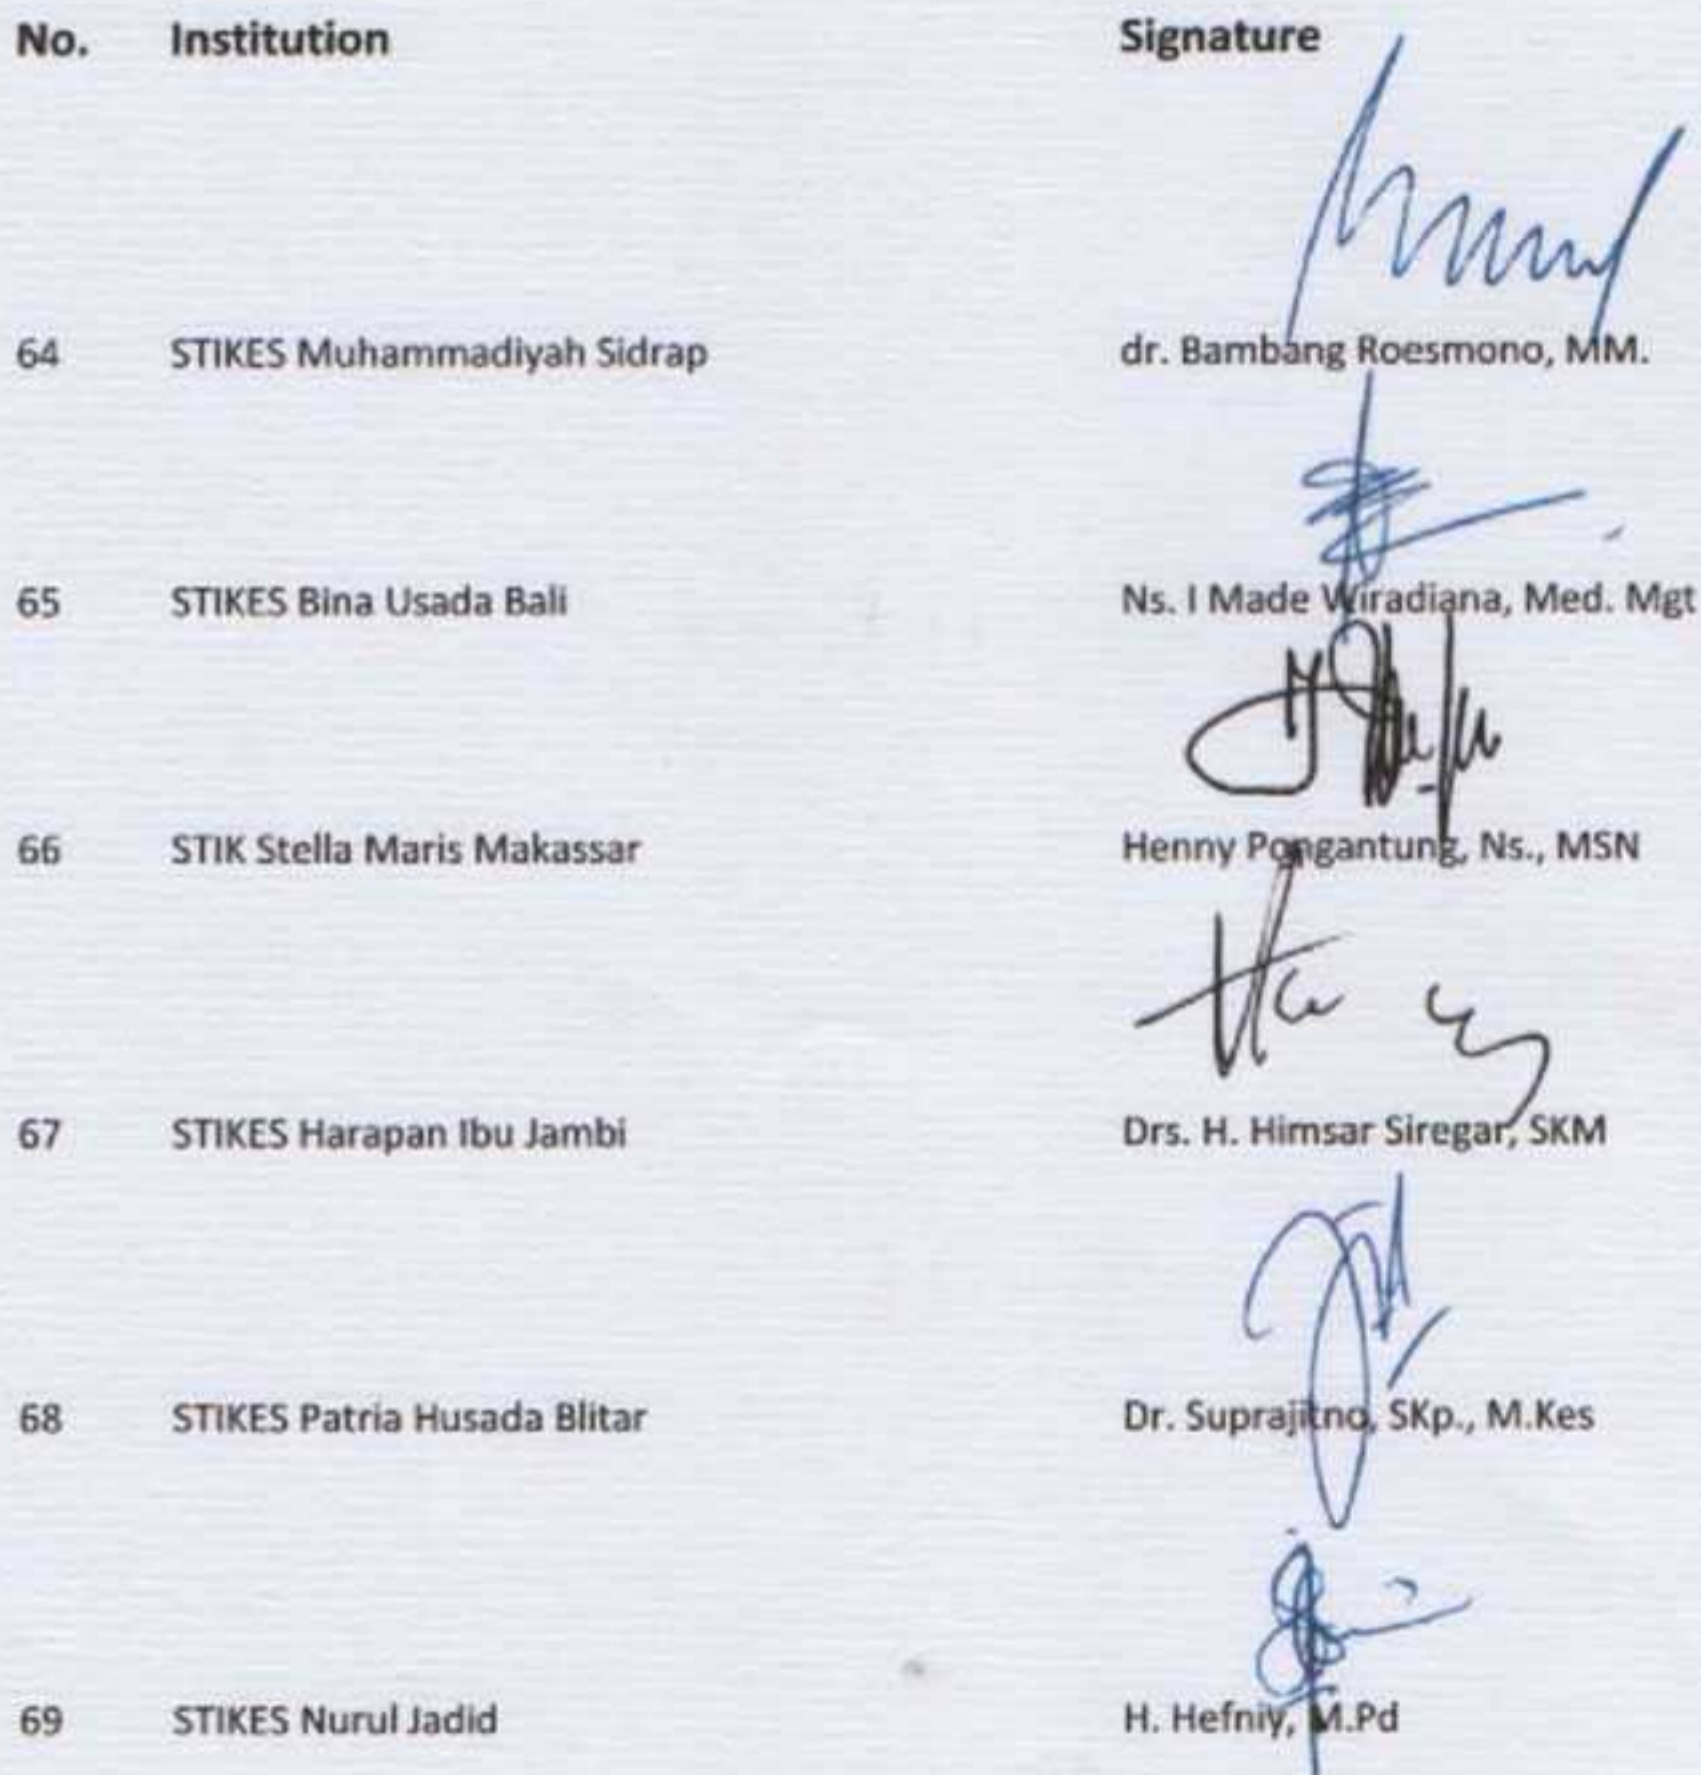 No. Institution Signature
64 STIKES Muhammadiyah Sidrap dr. Bambang Roesmono, MM.
65 STIKES Bina Usada Bali Ns. I Made Wiradiana, Med. Mgt
66 STIK Stella Maris Makassar Henny Pongantung, Ns., MSN
67 STIKES Harapan Ibu Jambi Drs. H. Himsar Siregar, SKM
68 STIKES Patria Husada Blitar Dr. Suprajitno, SKp., M.Kes
69 STIKES Nurul Jadid H. Hefniy, M.Pd